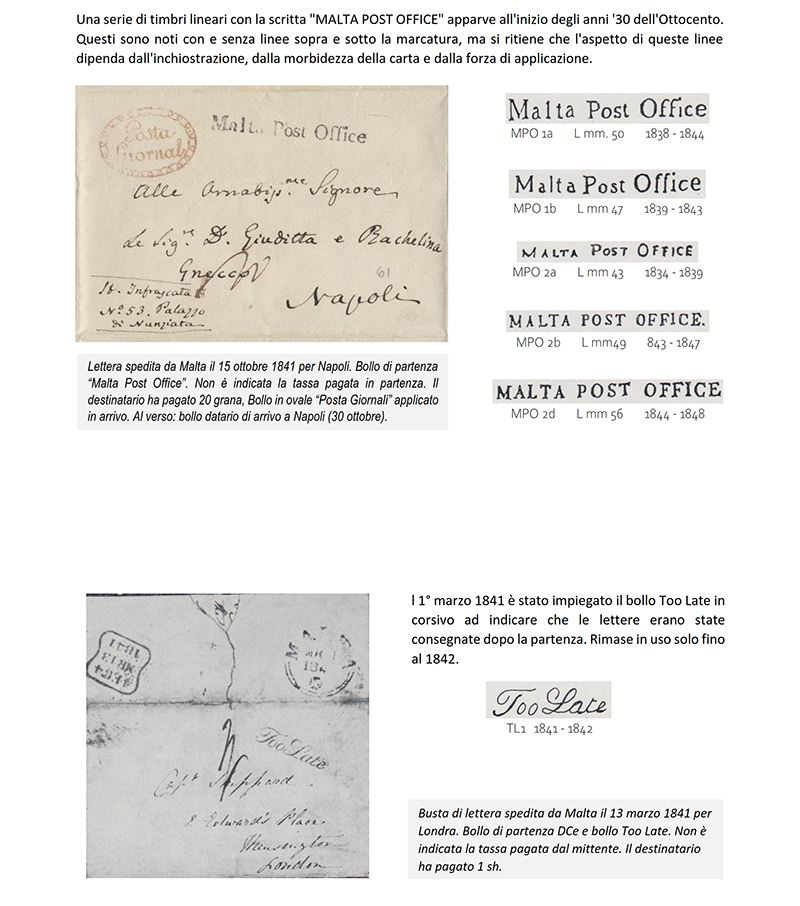 Una serie di timbri lineari con la scritta "MALTA POST OFFICE" apparve all'inizio degli anni '30 dell'Ottocento.
Questi sono noti con e senza linee sopra e sotto la marcatura, ma si ritiene che l'aspetto di queste linee
dipenda dall'inchiostrazione, dalla morbidezza della carta e dalla forza di applicazione.
Posta
Giornali
Malta Post Office
Alle Amabis.me Signore
Le Sig.re D. Giuditta e Rachelina
Gnecco
61
Napoli
St. Infrascata
No 53. Palazzo
di Nunziata
Lettera spedita da Malta il 15 ottobre 1841 per Napoli. Bollo di partenza
“Malta Post Office”. Non è indicata la tassa pagata in partenza. Il
destinatario ha pagato 20 grana, Bollo in ovale “Posta Giornali” applicato
in arrivo. Al verso: bollo datario di arrivo a Napoli (30 ottobre).
Malta Post Office
MPO 1a L mm. 50 1838 - 1844
Malta Post Office
MPO 1b L mm 47 1839 - 1843
MALTA POST OFFICE
MPO 2a L mm 43 1834 - 1839
MALTA POST OFFICE.
MPO 2b L mm49 843 - 1847
MALTA POST OFFICE
MPO 2d L mm 56 1844 - 1848
1841
MR13
MALTA
MR 1
184
Too Late
Capt Sheppard
8 Edward's Place
Kensington
London
l 1° marzo 1841 è stato impiegato il bollo Too Late in
corsivo ad indicare che le lettere erano state
consegnate dopo la partenza. Rimase in uso solo fino
al 1842.
Too Late
TL1 1841 - 1842
Busta di lettera spedita da Malta il 13 marzo 1841 per
Londra. Bollo di partenza DCe e bollo Too Late. Non è
indicata la tassa pagata dal mittente. Il destinatario
ha pagato 1 sh.